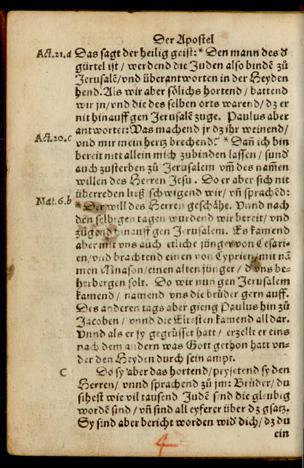 Der Apostel
Act.21.d Das sagt der heilig geist: * Den mann des ð
gürtel ist / werdend die Juden also bindē zů
Jerusalē/vnd überantworten in der Heyden
hend. Als wir aber sölichs hortend / battend
wir jn/vnd die des selben orts warend/dz er
nit hinauff gen Jerusalē zuge. Paulus aber
antwortet: Was machend jr dz ihr weinend/
Act.20.c vnd mir mein hertz brechend? * Dañ ich bin
bereit nitt allein mich zubinden lassen / sund
auch zusterben zů Jerusalem vm̄ des namen
willen des Herren Jesu. Do er aber sich nit
überreden ließ schwigend wir / vñ sprachēd:
Mat.6.b * Der will des Herren geschähe. Vnnd nach
den selbigen tagen wurdend wir bereit/ vnd
zugend hinauff gen Jerusalem. Es kamend
aber mit vns auch etliche jünger von Cesari-
en/vnd brachtend einen von Cypren/mit nā
men Mnason/einen alten jünger / ð vns be-
herbergen solt. Do wir nun gen Jerusalem
kamend / namend vns die brüder gern auff.
Des anderen tags aber gieng Paulus hin zů
Jacoben / vnnd die Eltesten kamend all dar.
Vnnd als er sy gegrüsset hatt / erzellt er eins
nach dem andern was Gott gethon hatt vn-
der den Heyden durch sein ampt.
C Do sy aber das hortend/pryßetend sy den
Herren/ vnnd sprachend zů jm: Brůder/ du
sihest wie vil tausend Judē sind die gleubig
wordē sind / vñ sind all eyferer über dz gsatz.
Sy sind aber bericht worden wid dich/ dz du
ein
4